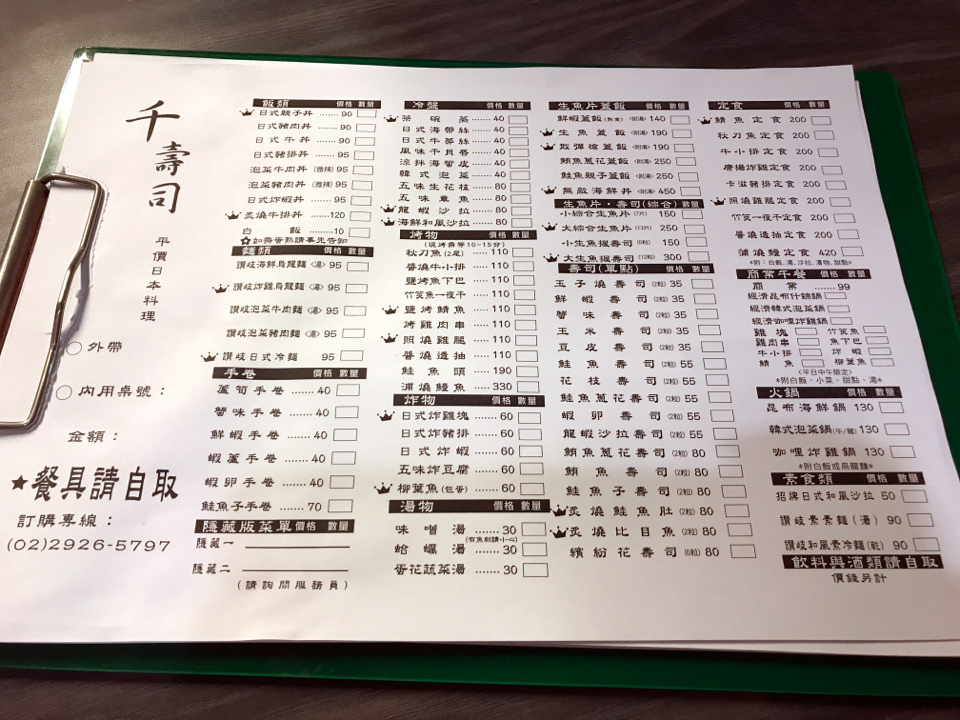 千壽司
平價日本料理
外帶
內用桌號：
金額：
★餐具請自取
訂購專線：
(02)2926-5797
飯類 價格 數量
日式親子丼 ...... 90
日式豬肉丼 ...... 90
日式牛丼 ...... 90
日式豬排丼 ...... 95
泡菜牛肉丼 (微辣) 95
泡菜豬肉丼 (微辣) 95
日式炸蝦丼 ...... 95
炙燒牛排丼 ......120
白飯 .........10
✩如需蛋熟請事先告卸
麵類 價格 數量
讚岐海鮮烏龍麵 (湯) 95
讚岐炸雞烏龍麵 (湯) 95
讚岐泡菜牛肉麵 (湯) 95
讚岐泡菜豬肉麵 (湯) 95
讚岐日式冷麵 95
手卷 價格 數量
蘆筍手卷 ...... 40
蟹味手卷 ...... 40
鮮蝦手卷 ...... 40
蝦蘆手卷 ...... 40
蝦卵手卷 ...... 40
鮭魚子手卷 ...... 70
隱藏版菜單 價格 數量
隱藏一
隱藏二
(請詢問服務員)
冷盤 價格 數量
茶碗蒸 ...... 40
日式海帶絲 ...... 40
日式牛蒡絲 ...... 40
風味干貝唇 ...... 40
涼拌海蜇皮 ...... 40
韓式泡菜 ...... 40
五味生花枝 ...... 80
五味章魚 ...... 80
龍蝦沙拉 ...... 80
海鮮和風沙拉 ...... 80
烤物 價格 數量
(現烤需等10-15分)
秋刀魚(2尾) ...... 110
醬燒牛小排 ...... 110
鹽烤魚下巴 ...... 110
竹筴魚一夜干 ...... 110
鹽烤鯖魚 ...... 110
烤雞肉串 ...... 110
照燒雞腿 ...... 110
醬燒透抽 ...... 110
鮭魚頭 ...... 190
浦燒鰻魚 ...... 330
炸物 價格 數量
日式炸雞塊 ...... 60
日式炸豬排 ...... 60
日式炸蝦 ...... 60
五味炸豆腐 ...... 60
柳葉魚(包蛋) ...... 60
湯物 價格 數量
味噌湯 ...... 30
(有魚刺請小心)
蛤蠣湯 ...... 30
蛋花蔬菜湯 ...... 30
生魚片蓋飯 價格 數量
鮮蝦蓋飯 (熟食) 140
生魚蓋飯 (附湯) 190
散彈槍蓋飯 (附湯) 190
鮪魚蔥花蓋飯 (附湯) 250
鮭魚親子蓋飯 (附湯) 250
無敵海鮮丼 (附湯) 450
生魚片・壽司(綜合) 數量
小綜合生魚片 (7片) 150
大綜合生魚片 (13片) 250
小生魚握壽司 (6粒) 150
大生魚握壽司 (12粒) 300
壽司(單點) 價格 數量
玉子燒壽司 (2粒) 35
鮮蝦壽司 (2粒) 35
蟹味壽司 (2粒) 35
玉米壽司 (2粒) 35
豆皮壽司 (2粒) 35
鮭魚壽司 (2粒) 55
花枝壽司 (2粒) 55
鮭魚蔥花壽司 (2粒) 55
蝦卵壽司 (2粒) 55
龍蝦沙拉壽司 (2粒) 55
鮪魚蔥花壽司 (2粒) 80
鮪魚壽司 (2粒) 80
鮭魚子壽司 (2粒) 80
炙燒鮭魚肚 (2粒) 80
炙燒比目魚 (2粒) 80
繽紛花壽司 (6粒) 80
定食 價格 數量
鯖魚定食 200
秋刀魚定食 200
牛小排定食 200
唐揚炸雞定食 200
卡滋豬排定食 200
照燒雞腿定食 200
竹筴一夜干定食 200
醬燒透抽定食 200
浦燒鰻定食 420
*附：白飯,湯,沙拉,漬物,甜點*
商業午餐 價格 數量
商業 ...... 99
經濟昆布什錦鍋
經濟韓式泡菜鍋
經濟咖哩炸雞鍋
雞塊 竹筴魚
雞肉串 魚下巴
牛小排 炸蝦
鯖魚 柳葉魚
(平日中午限定)
*附白飯、小菜、甜點、湯*
火鍋 價格 數量
昆布海鮮鍋 130
韓式泡菜鍋(牛/豬) 130
咖哩炸雞鍋 130
*附白飯或烏龍麵*
素食類 價格 數量
招牌日式和風沙拉 50
讚岐素素麵(湯) 90
讚岐和風素冷麵(乾) 90
飲料與酒類請自取
價錢另計